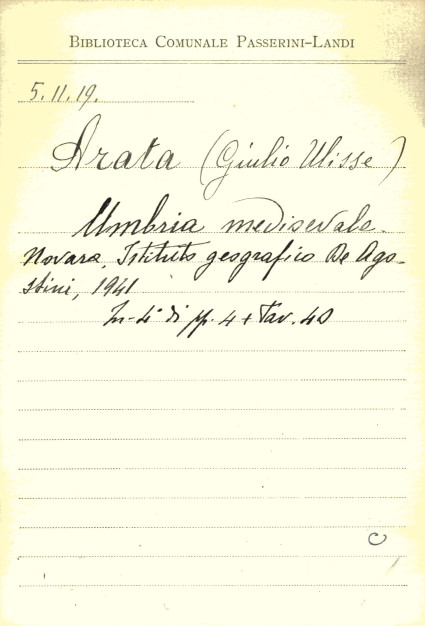 BIBLIOTECA COMUNALE PASSERINI-LANDI
5.11.19.
Arata (Giulio Ulisse)
Umbria medioevale.
Novara, Istituto geografico De Ago-
stini, 1941
In-4° di pp. 4 + Tav. 40
C